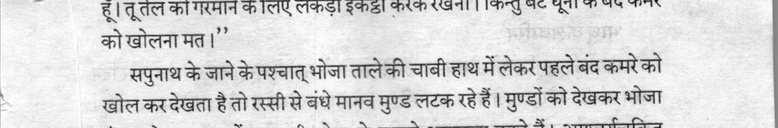 हूँ। तू तेल को गरमाने के लिए लकड़ी इकट्ठी करके रखना। किन्तु
को खोलना मत।’’
सपुनाथ के जाने के पश्चात् भोजा ताले की चाबी हाथ में लेकर पहले बंद कमरे को
खोल कर देखता है तो रस्सी से बंधे मानव मुण्ड लटक रहे हैं। मुण्डों को देखकर भोजा